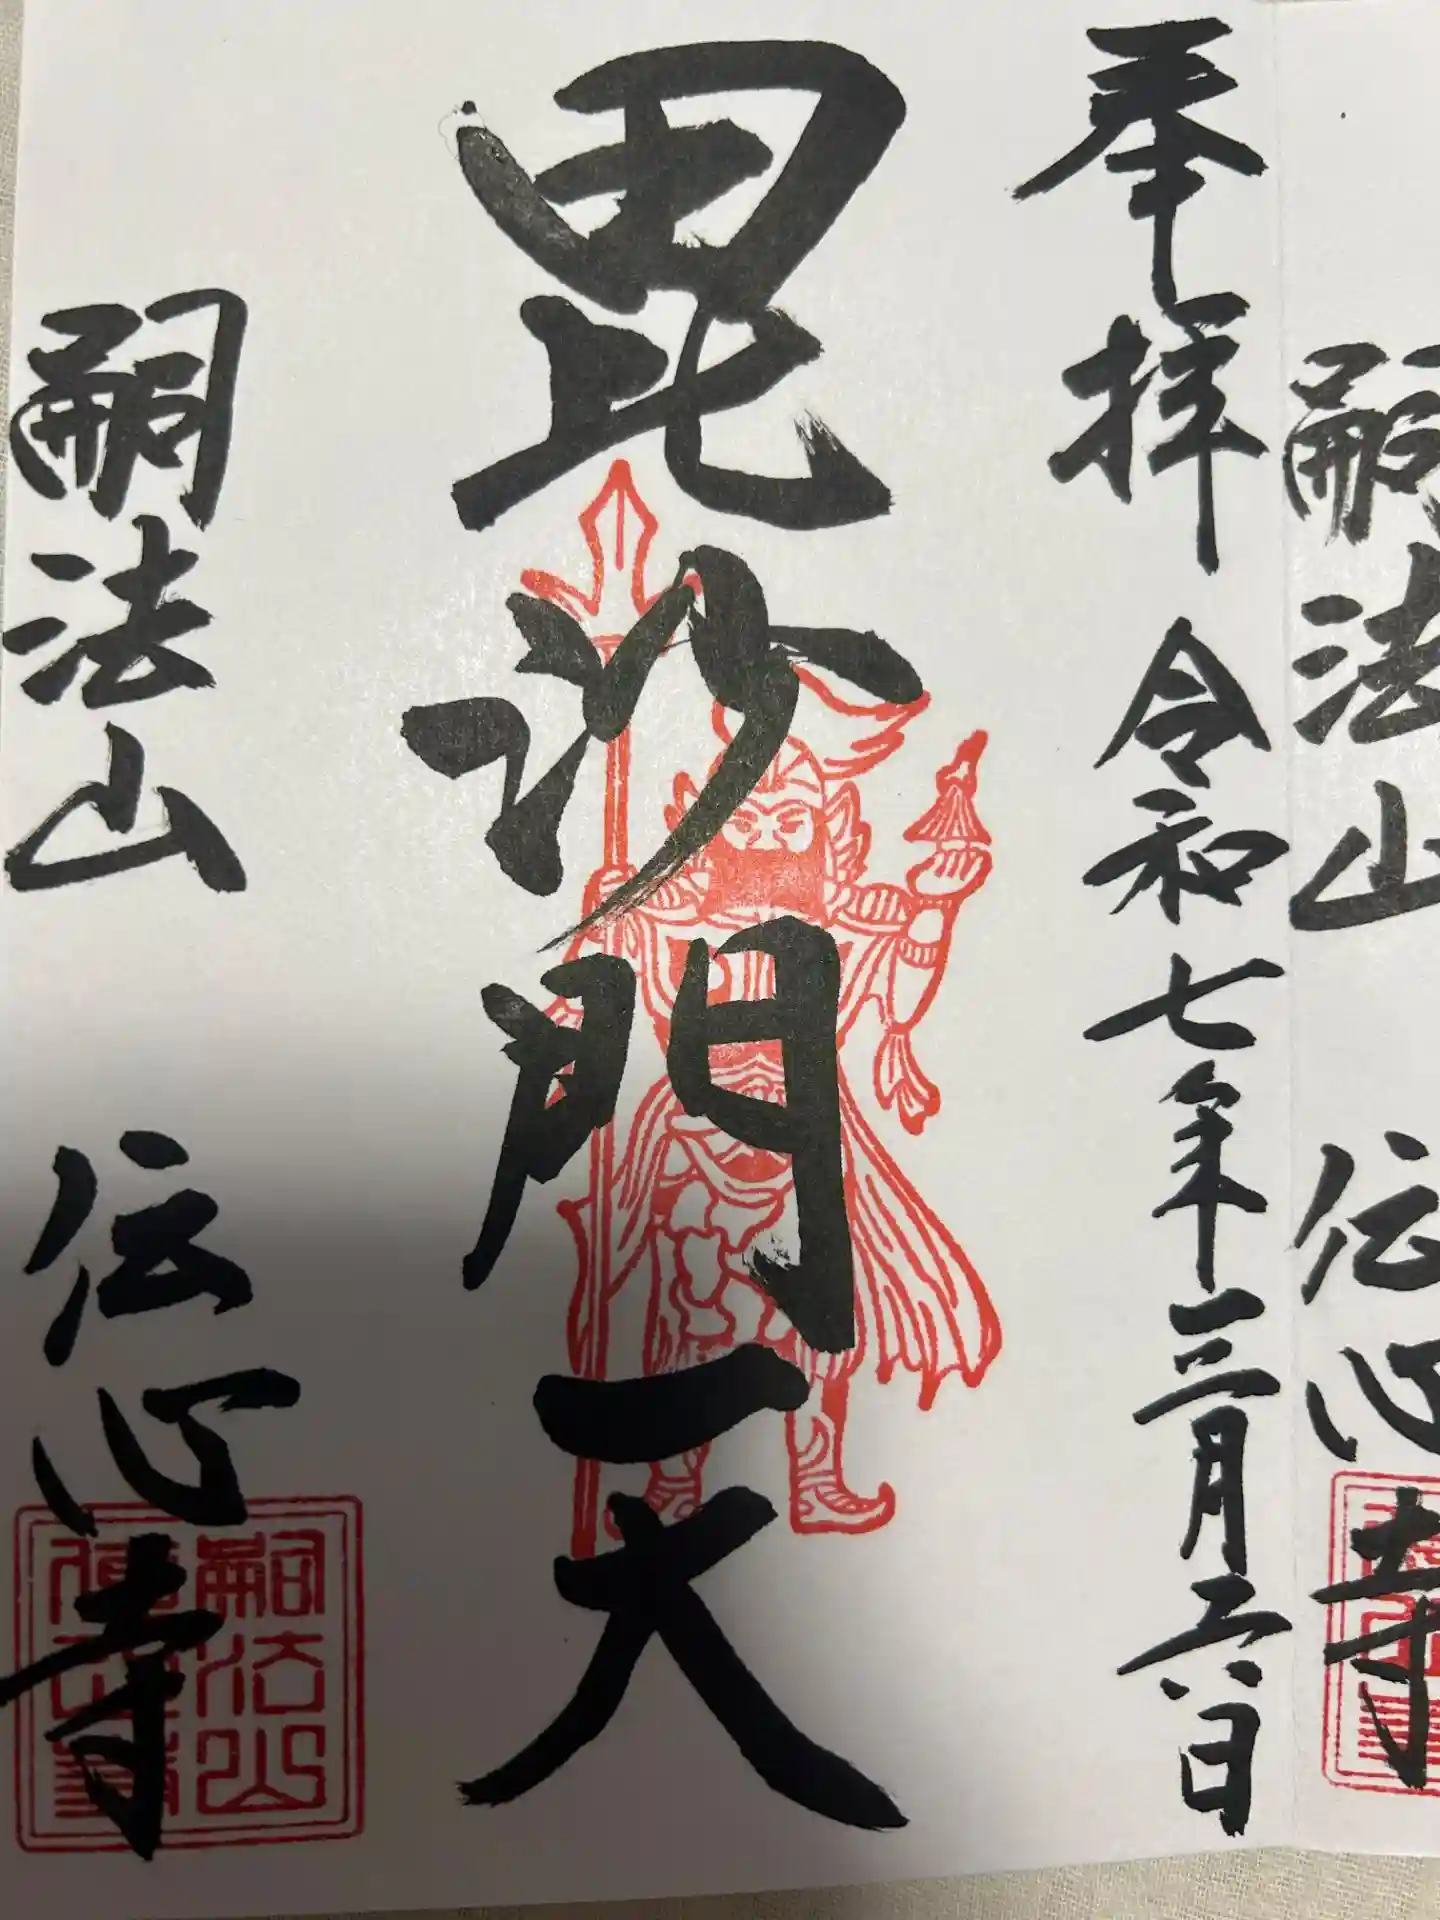 嗣法山 伝心寺
奉拝 令和七年三月六日
毘沙門天
嗣法山 伝心寺
嗣法山
傳心寺